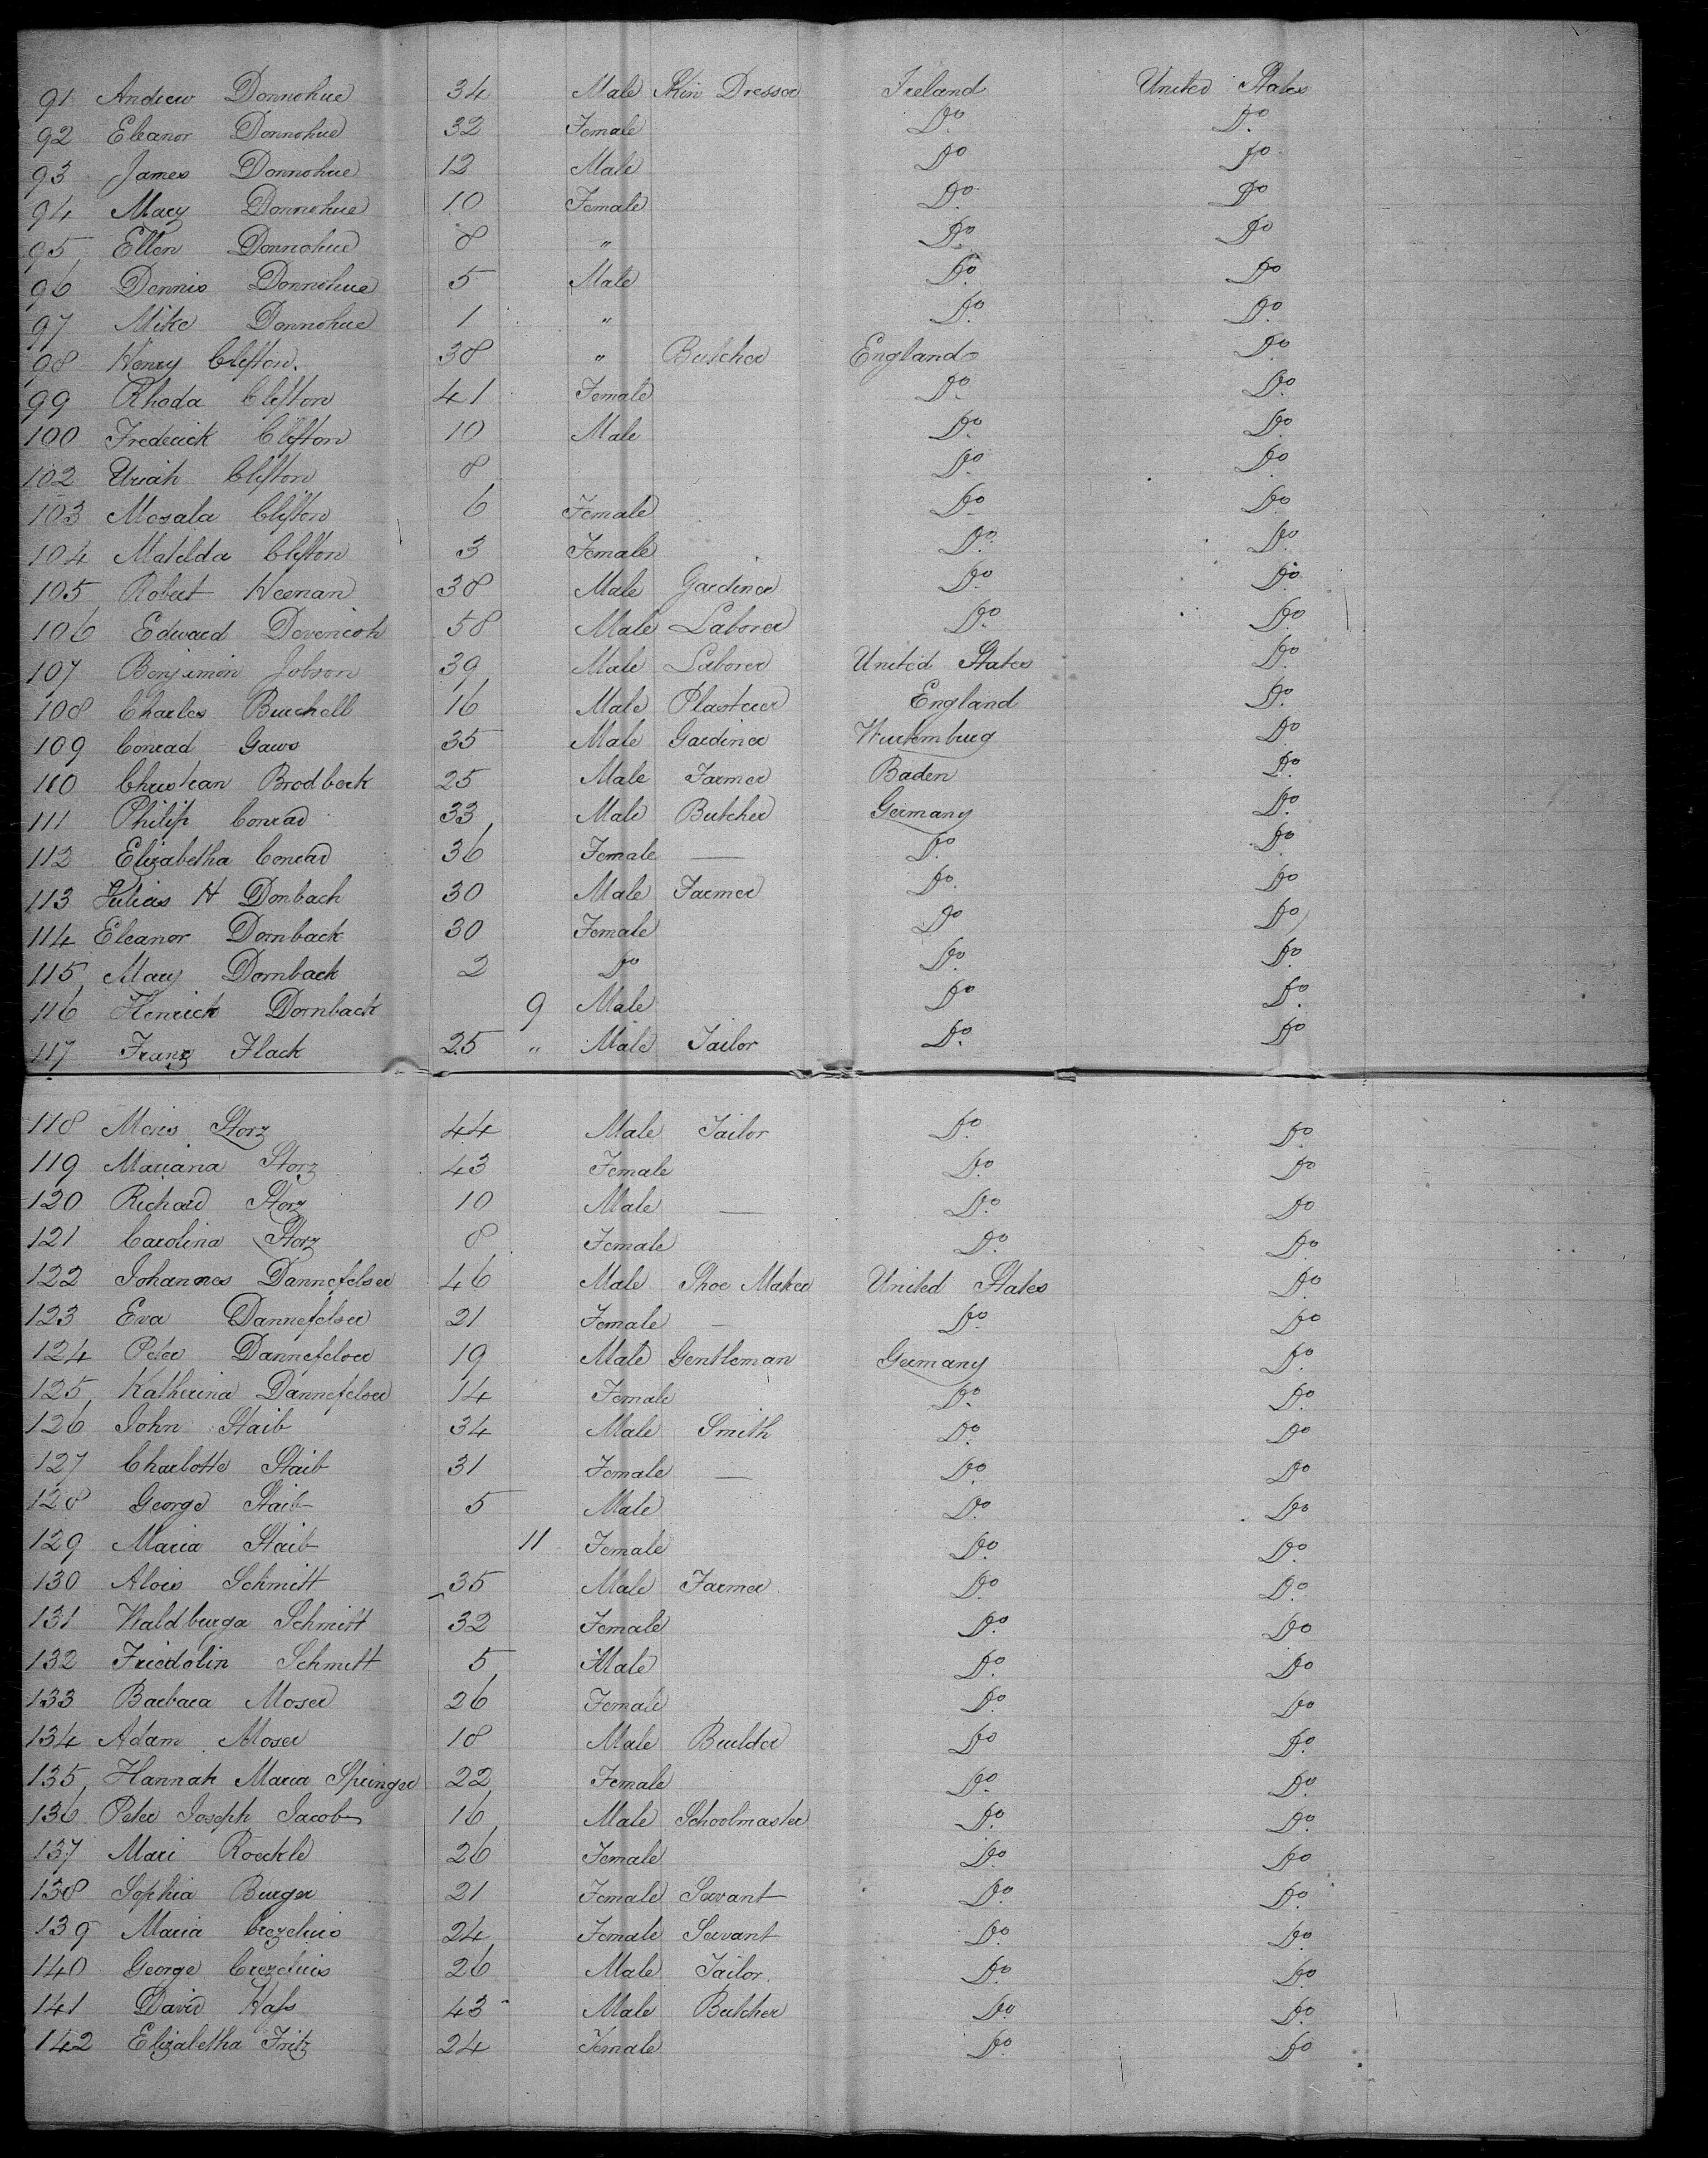 91 Andrew Donnohue 34 Male Skin Dresser Ireland United States
92 Eleanor Donnohue 32 Female Do. Do.
93 James Donnohue 12 Male Do Do
94 Mary Donnohue 10 Female Do. Do
95 Ellen Donnohue 8 " Do. Do
96 Dennis Donnohue 5 Male Do. Do
97 Mike Donnohue 1 " Do. Do.
98 Henry Clifton. 38 " Butcher England Do.
99 Rhoda Clifton 41 Female Do. Do.
100 Frederick Clifton 10 Male Do. Do.
102 Uriah Clifton 8 Do. Do.
103 Mosala Clifton 6 Female Do. Do.
104 Matelda Clifton 3 Female Do. Do.
105 Robert Keenan 38 Male Gardiner Do. Do.
106 Edward 58 Male Laborer Do. Do.
107 Benjamin Jobson 39 Male Laborer United States Do.
108 Charles Burchell 16 Male Plasterer England Do.
109 Conrad Gaws 35 Male Gardiner Wurtemburg Do
110 Christian Brodbeck 25 Male Farmer Baden Do.
111 Philip Conrad 33 Male Butcher Germany Do.
112 Elizabetha Conrad 36 Female — Do. Do.
113 Julias H Donbach 30 Male Farmer Do. Do
114 Eleanor Dornback 30 Female Do Do
115 Mary Dornback 2 Do Do. Do.
116 Henrick Dornback 9 Male Do Do.
117 Franz Flack 25 " Male Tailor Do. Do
118 Storz 44 Male Tailor Do. Do.
119 Mariana Storz 43 Female Do. Do
120 Richard Storz 10 Male — Do. Do
121 Carolina Storz 8 Female Do. Do.
122 Johannes Dannefelser 46 Male Shoe Maker United States Do.
123 Eva Dannefelser 21 Female — Do. Do
124 Peter Dannefelser 19 Male Gentleman Germany Do.
125 Katherina Dannefelser 14 Female Do. Do.
126 John Staib 34 Male Smith Do. Do
127 Charlotte Staib 31 Female — Do. Do
128 George Staib 5 Male Do. Do
129 Maria Staib 11 Female Do. Do.
130 Alois Schmitt 35 Male Farmer Do. Do.
131 Waldburga Schmitt 32 Female Do. Do
132 Friedolin Schmitt 5 Male Do. Do
133 Barbara Moser 26 Female Do. Do
134 Adam Moser 18 Male Builder Do Do.
135 Hannah Maria Springer 22 Female Do. Do.
136 Peter Joseph Jacob 16 Male Schoolmaster Do. Do.
137 Mari Roeckle 26 Female Do. Do
138 Sophia Burger 21 Female Servant Do. Do.
139 Maria Crezelius 24 Female Servant Do. Do.
140 George Crezelius 26 Male Tailor. Do. Do
141 David Hafs 43 Male Butcher Do. Do.
142 Elizabetha Fritz 24 Female Do. Do